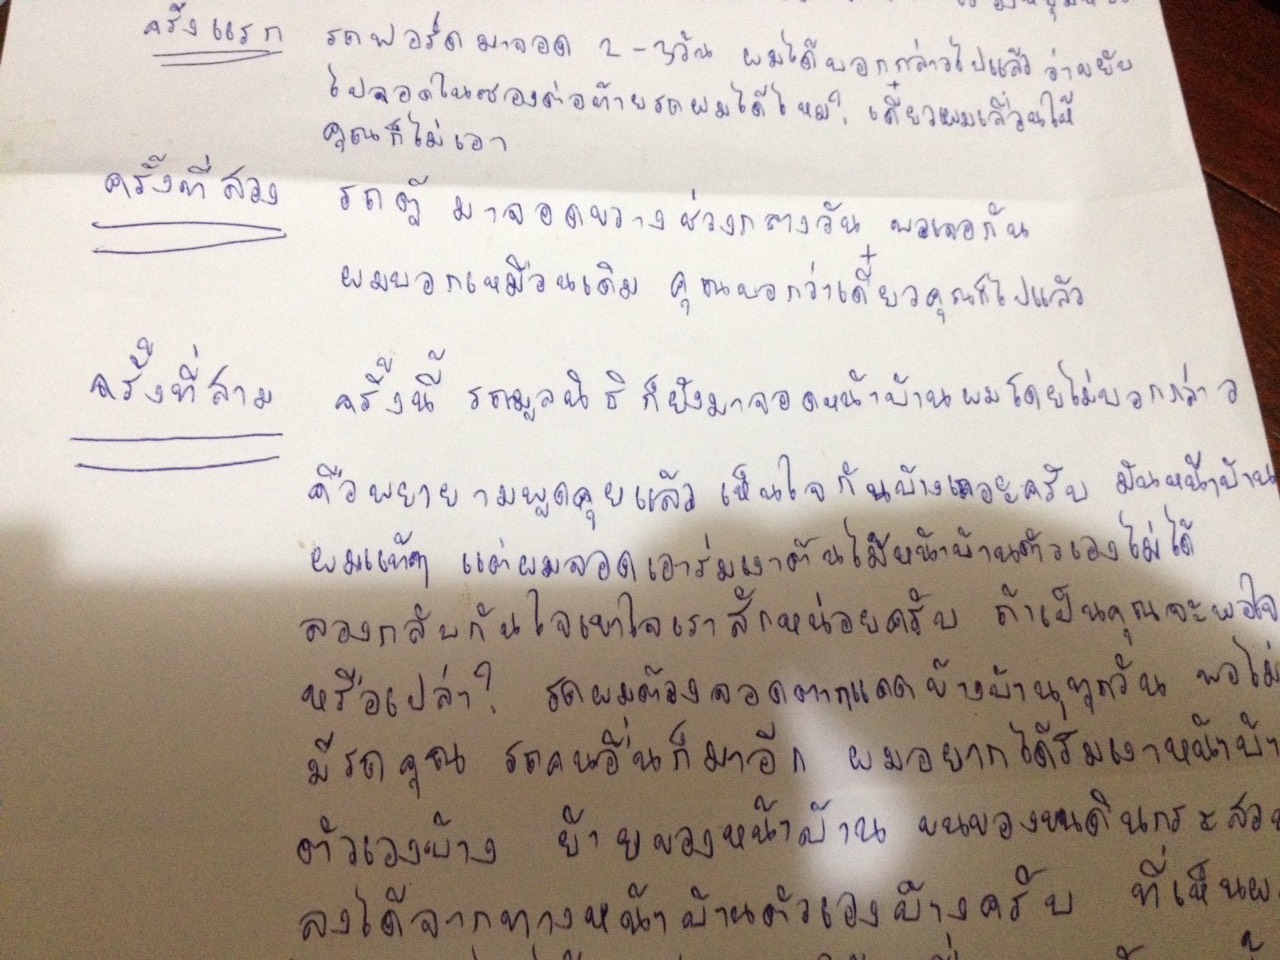 ครั้งแรก รถฟอร์ดมาจอด 2-3วัน ผมได้บอกกล่าวไปแล้ว ว่าขยับ
ไปจอดในซองต่อท้ายรถผมได้ไหม? เดี๋ยวผมเลื่อนให้
คุณก็ไม่เอา
ครั้งที่สอง รถตู้ มาจอดขวางช่วงกลางวัน พอเจอกัน
ผมบอกเหมือนเดิม คุณบอกว่าเดี๋ยวคุณก็ไปแล้ว
ครั้งที่สาม ครั้งนี้ รถมูลนิธิก็ยังมาจอดหน้าบ้านผมโดยไม่บอกกล่าว
คือพยายามพูดคุยแล้ว เห็นใจกันบ้างเถอะครับ มันหน้าบ้าน
ผมแท้ๆ แต่ผมจอดเอาร่มเงาต้นไม้หน้าบ้านตัวเองไม่ได้
ลองกลับกันใจเขาใจเราสักหน่อยครับ ถ้าเป็นคุณจะพอใจ
หรือเปล่า? รถผมต้องจอดตากแดดข้างบ้านทุกวัน พอไม่
มีรถคุณ รถคนอื่นก็มาอีก ผมอยากได้ร่มเงาหน้าบ้า
ตัวเองบ้าง ย้ายของหน้าบ้าน ขนของขนดินกระสอบ
ลงได้จากทางหน้าบ้านตัวเองบ้างครับ ที่เห็นผ